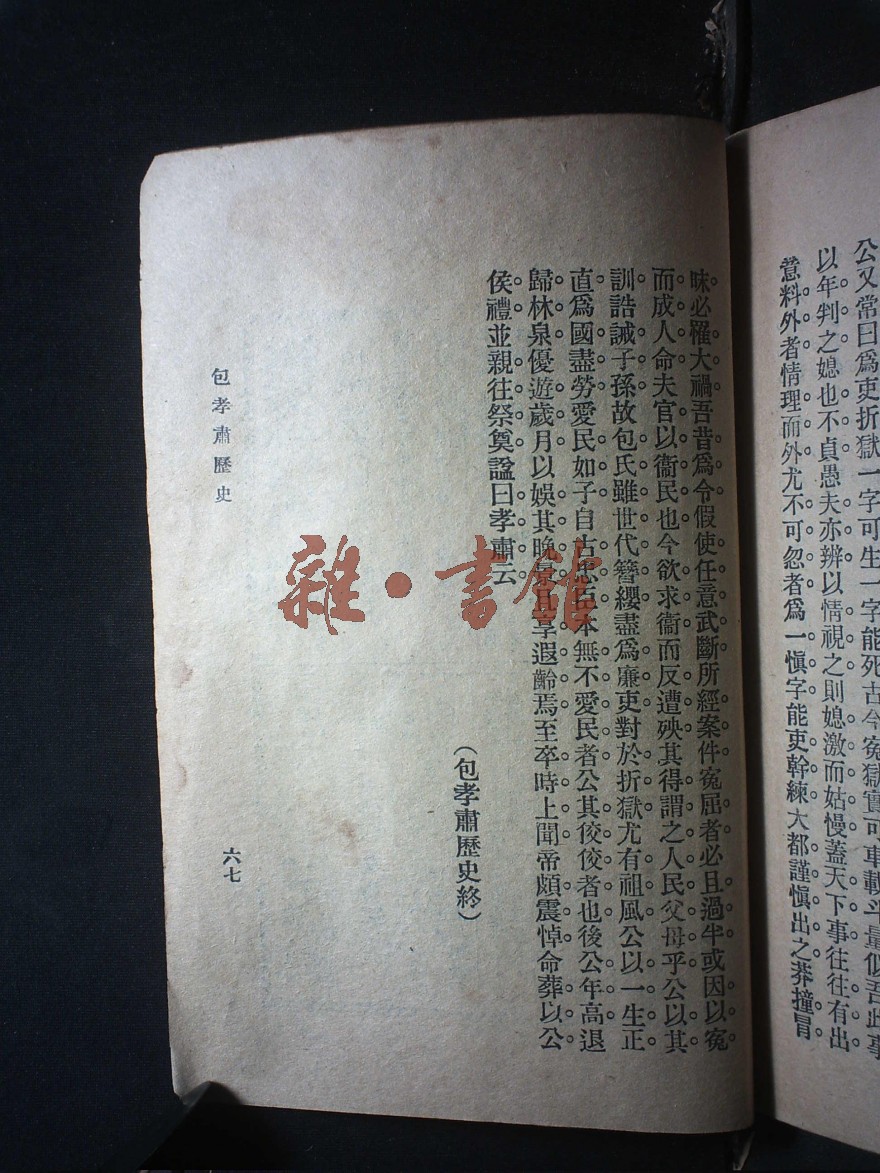 公又常曰爲吏折獄一字可生一字能死古今冤獄實可車載斗量似吾此事
以年判之媳也不貞愚夫亦辨以情視之則媳激而姑慢蓋天下事往往有出
意料外者情理而外尤不可忽者爲一慎字能吏幹練大都謹慎出之莽撞冒
昧必罹大禍吾昔爲令假使任意武斷所經案件冤屈者必且過半或因以冤
而成人命夫官以衞民也今欲求衞而反遭殃其得謂之人民父母乎公以其
訓誥誡子孫故包氏雖世代簪纓盡爲廉吏對於折獄尤有祖風公以一生正
直爲國盡勞愛民如子自古忠臣本無不愛民者公其佼佼者也後公年高退
歸林泉優遊歲月以娛其晚景且享遐齡焉至卒時上聞帝頗震悼命葬以公
侯禮並親往祭奠諡曰孝肅云
（包孝肅歷史終）
包孝肅歷史
六七
雜·書館